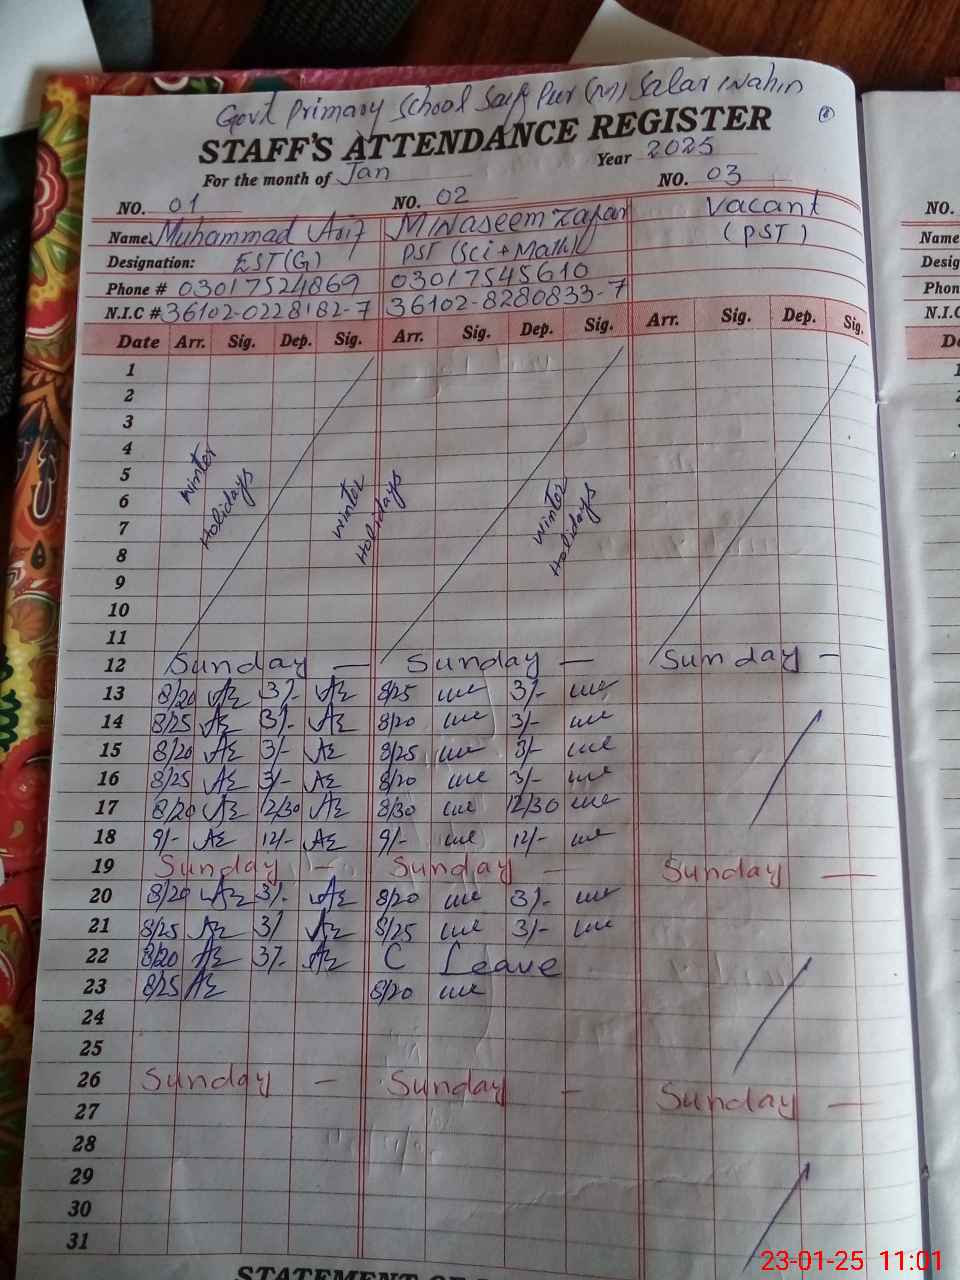 Govt Primary School Saif Pur (M) Salar Wahin
STAFF'S ATTENDANCE REGISTER
For the month of Jan Year 2025
NO. 01 NO. 02 NO. 03
Name Muhammad Arif M Naseem Zafar Vacant
Designation: EST(G) PST (Sci+Math) (PST)
Phone # 03017524869 03017545610
N.I.C # 36102-0228182-7 36102-8280833-7
Date Arr. Sig. Dep. Sig. Arr. Sig. Dep. Sig. Arr. Sig. Dep. Sig.
1
2
3
4
5
6
7
8
9
10
11
Winter Holidays Winter Holidays Winter Holidays
12 Sunday — Sunday — Sunday —
13 8/20 3/- 8/25 3/-
14 8/25 3/- 8/20 3/-
15 8/20 3/- 8/25 3/-
16 8/25 3/- 8/20 3/-
17 8/20 12/30 8/30 12/30
18 9/- 12/- 9/- 12/-
19 Sunday — Sunday — Sunday —
20 8/20 3/- 8/20 3/-
21 8/25 3/ 8/25 3/-
22 8/20 3/- C Leave
23 8/25 8/20
24
25
26 Sunday — Sunday — Sunday —
27
28
29
30
31
STATEMENT OF
NO.
Name
Desig
Phon
N.I.C
Da
23-01-25 11:01